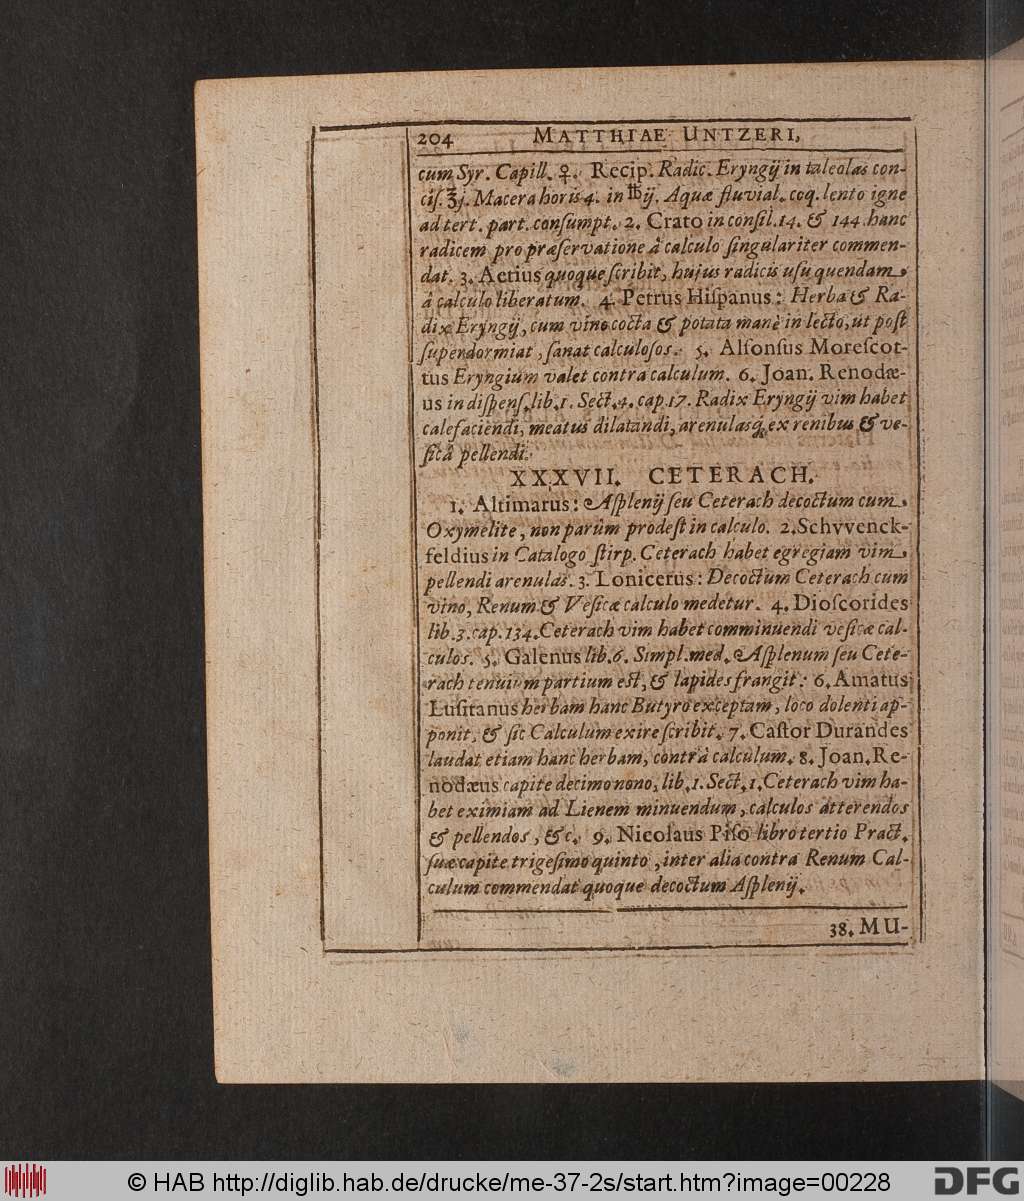 204 MATTHIAE UNTZERI,
cum Syr. Capill. ♀. Recip. Radic. Eryngij in taleolas con-
cis. ℥j. Macera horis 4. in ℔ij. Aquæ fluvial. coq. lento igne
ad tert. part. consumpt. 2. Crato in consil. 14. & 144. hanc
radicem pro præservatione â calculo singulariter commen-
dat. 3. Aetius quoque scribit, hujus radicis usu quendam
â calculo liberatum. 4. Petrus Hispanus: Herba & Ra-
dix Eryngij, cum vino cocta & potata manè in lecto, ut post
supendormiat, sanat calculosos. 5. Alfonsus Morescot-
tus Eryngium valet contra calculum. 6. Joan. Renodæ-
us in dispens. lib. 1. Sect. 4. cap. 17. Radix Eryngij vim habet
calefaciendi, meatus dilatandi, arenulasq́; ex renibus & ve-
sicâ pellendi.
XXXVII. CETERACH.
1. Altimarus: Asplenij seu Ceterach decoctum cum
Oxymelite, non parùm prodest in calculo. 2. Schvvenck-
feldius in Catalogo stirp. Ceterach habet egregiam vim
pellendi arenulas. 3. Lonicerus: Decoctum Ceterach cum
vino, Renum & Vesicæ calculo medetur. 4. Dioscorides
lib. 3. cap. 134. Ceterach vim habet comminuendi vesicæ cal-
culos. 5. Galenus lib. 6. Simpl. med. Asplenum seu Cete-
rach tenuium partium est, & lapides frangit: 6. Amatus
Lusitanus herbam hanc Butyro exceptam, loco dolenti ap-
ponit, & sic Calculum exire scribit. 7. Castor Durandes
laudat etiam hanc herbam, contrà calculum. 8. Joan. Re-
nodæus capite decimo nono, lib. 1. Sect. 1. Ceterach vim ha-
bet eximiam ad Lienem minuendum, calculos atterendos
& pellendos, &c. 9. Nicolaus Piso libro tertio Pract.
suæ capite trigesimo quinto, inter alia contra Renum Cal-
culum commendat quoque decoctum Asplenij.
38. MU-
© HAB http://diglib.hab.de/drucke/me-37-2s/start.htm?image=00228
DFG